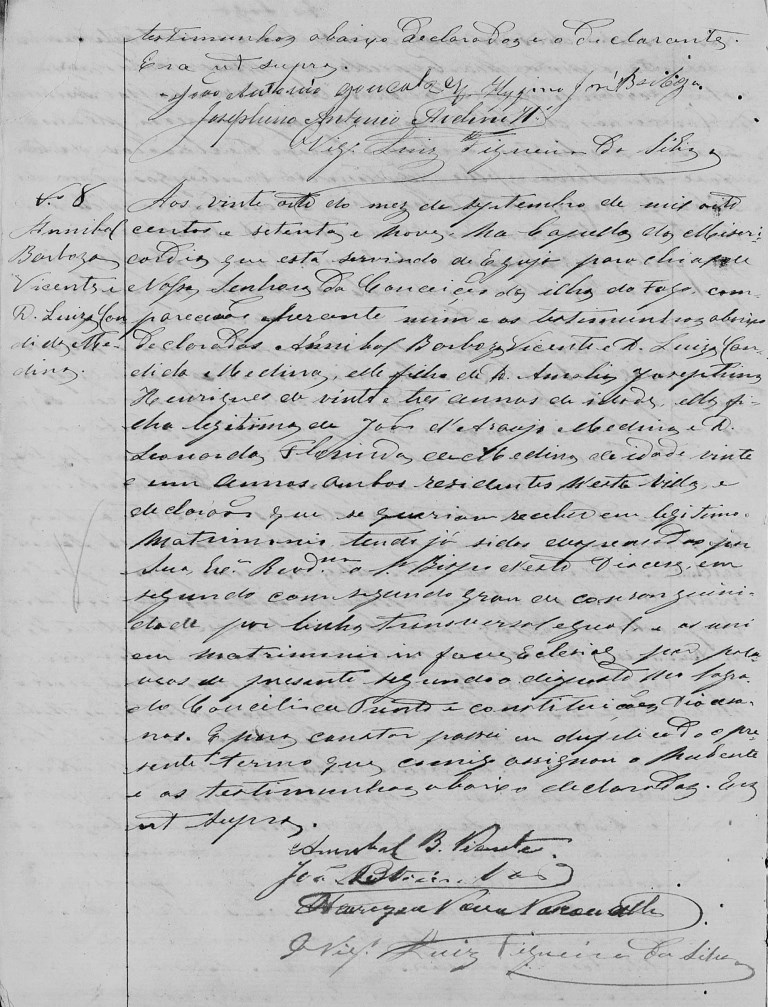 testimunhas abaixo declaradas e o declarante.
Era ut supra.
João Antonio Gonçalves Hygino José Barboza
Antonio
Vigº Luiz Figueira da Silva
Nº 8
Annibal
Barboza
Vicente e
D. Luiza Can
dida Me-
dina.
Aos vinte oito do mez de septembro de mil oito
centos e setenta e nove, na Capella da Miseri
cordia que está servindo de Egreja parochial de
Nossa Senhora da Conceição da ilha do Fogo, com
parecerão perante mim e as testimunhas abaixo
declaradas Annibal Barboza Vicente e D. Luiza Can-
dida Medina, elle filho de D. Amelia Josephina
Henriques de vinte e tres annos de idade, ella fi-
lha legitima de João d'Araujo Medina e D.
Leonarda Florinda de Medina de idade vinte
e um annos, ambos residentes nesta Villa, e
declararão que se queriam receber em legitimo
Matrimonio tendo já sidos dispensados por
Sua Exª Revdma o Sr Bispo desta Diocese, em
segundo com segundo grau de consanguini-
dade por linha transversal egual, e os uni
em matrimonio in facie Eclesiae por pala
vras de presente segundo o disposto no Sagra-
do Concilio de Trento e constituições Diocesa-
nas. E para constar passei em duplicado o pre-
sente termo que comigo assignou o Nubente
e as testimunhas abaixo declaradas. Era
ut supra.
Annibal B. Vicente
João
Henrique Vasconcellos
O Vigº Luiz Figueira da Silva